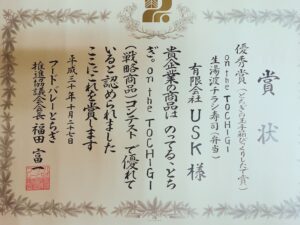 賞状
優秀賞(とちぎの玉手箱
on the TOCHIGI
生湯波チラシ寿司(弁当)
有限会社 USK 様
貴企業の商品は のってる、とち
ぎ。on the TOCHIGI
(戦略商品)コンテスト で優れて
いると認められました
ここにこれを賞します
平成三十年十月二十七日
フードバレーとちぎ
推進協議会会長 福田富一